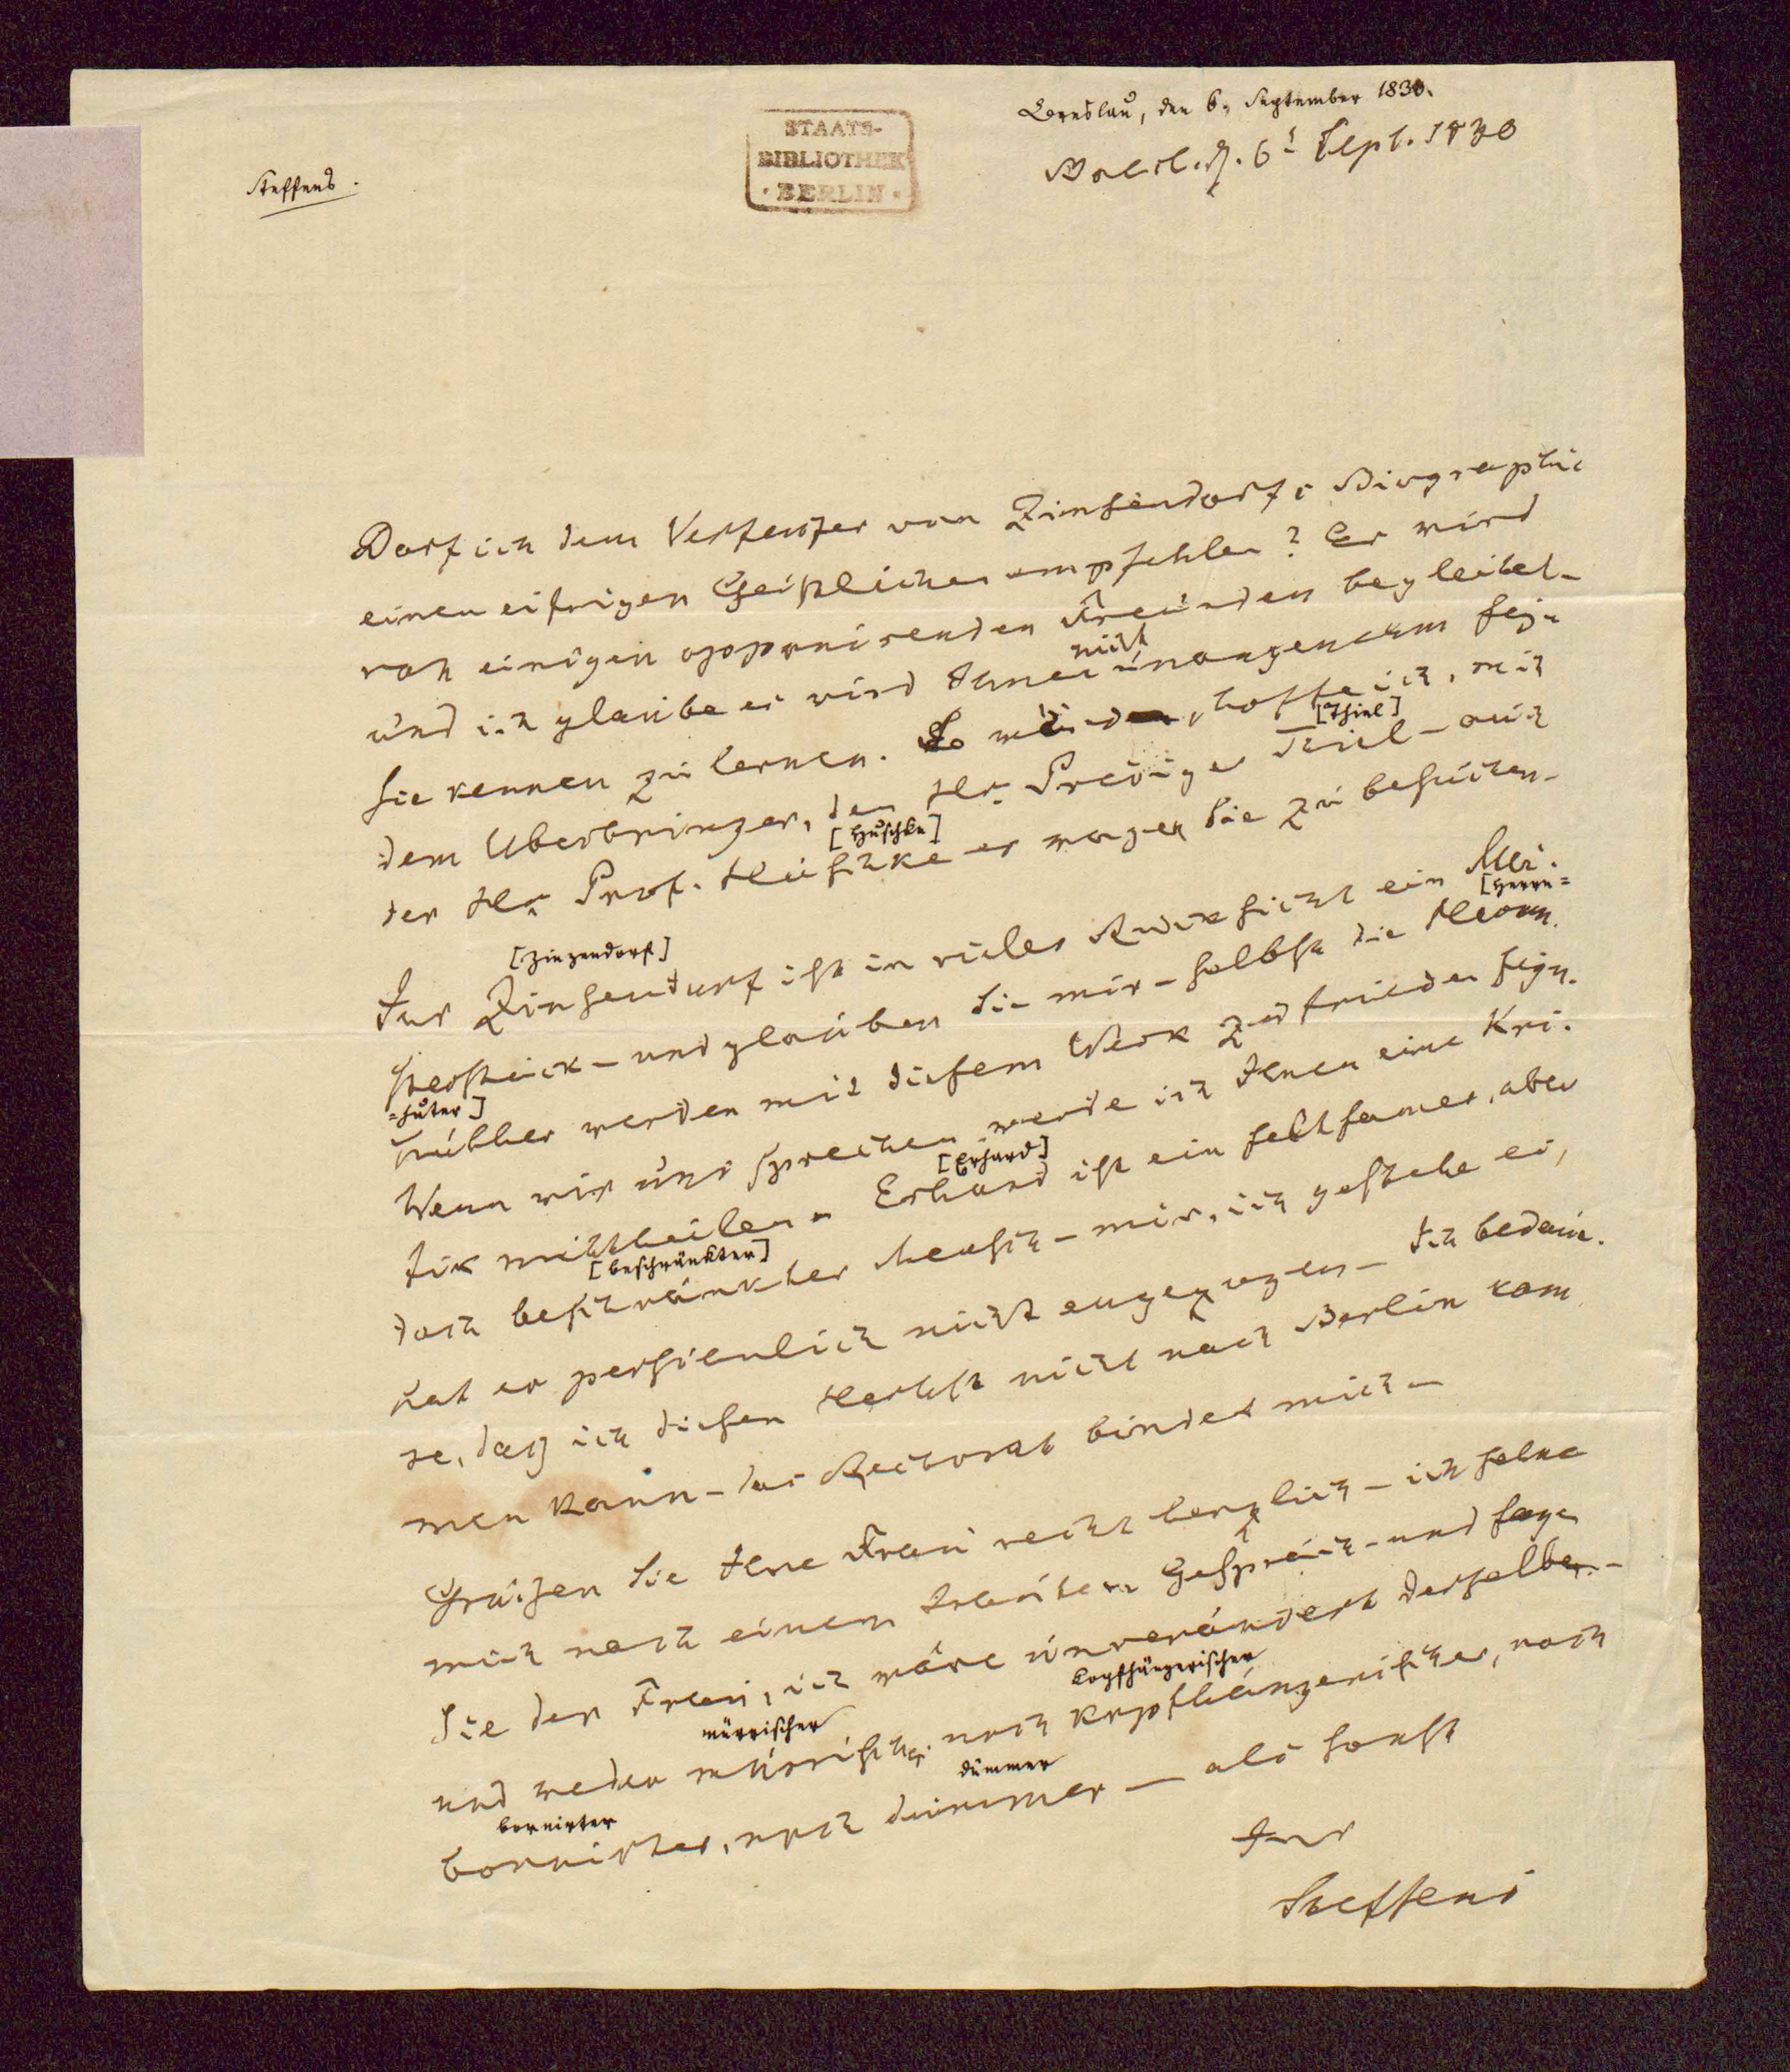 Breslau, den 6. September 1830.
Steffens.
STAATS-
BIBLIOTHEK
· BERLIN ·
6t Sept. 1830
Darf ich dem Verfasser von Zinsendorfs Biographie
einen eifrigen Geistlichen empfehlen? Er wird
von einigen opponirenden Freunden begleitet –
nicht
und ich glaube es wird Ihnen unangenehm seyn
Sie kennen zu lernen. So würde, hoffe ich, mit
[Thiel]
dem Uberbringer, den Hr. Prediger Thiel – auch
[Huschke]
der Hr. Prof. Huschke es wagen Sie zu besuchen –
[Herrn=
[Zinzendorf]
Ihr Zinsendorf ist in vieler Rucksicht ein Mei-
sterstück – und glauben Sie mir – selbst die Herrn
=huter]
huther werden mit diesem Werk zufrieden seyn.
Wenn wir uns sprechen werde ich Ihnen eine Kri-
[Erhard]
tik mittheilen – Erhard ist ein seltsamer, aber
[beschränkter]
doch beschränkter Mensch – mir, ich gestehe es,
hat er persienlich nicht angezogen – Ich bedau-
re, daß ich diesen Herbst nicht nach Berlin kom
men kann – das Rectorat bindet mich –
Grüßen Sie Ihre Frau recht herzlich – ich sehne
mich nach einem Gespräch – und sagen
Sie der Frau, ich wäre unverändert derselbe –
kopfhängerischer
mürrischer
und weder mürrischer noch kopfhängerischer, noch
dümmer
bornirter
bornirter, noch dümmer – als sonst
Ihr
Steffens